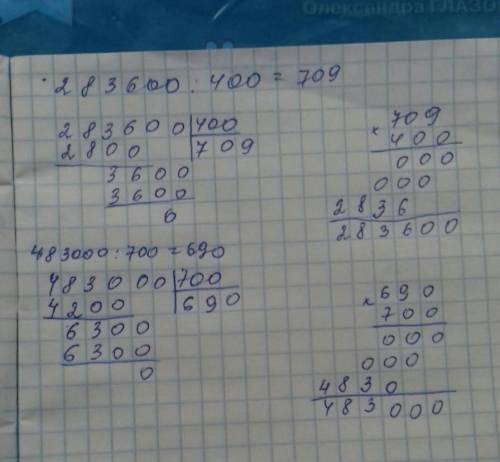 Олександра ГЛАЗО
283600 : 400 = 709
283600 | 400
2800 | 709
3600
3600
0
× 709
400
000
000
2836
283600
483000 : 700 = 690
483000 | 700
4200 | 690
6300
6300
0
× 690
700
000
000
4830
483000